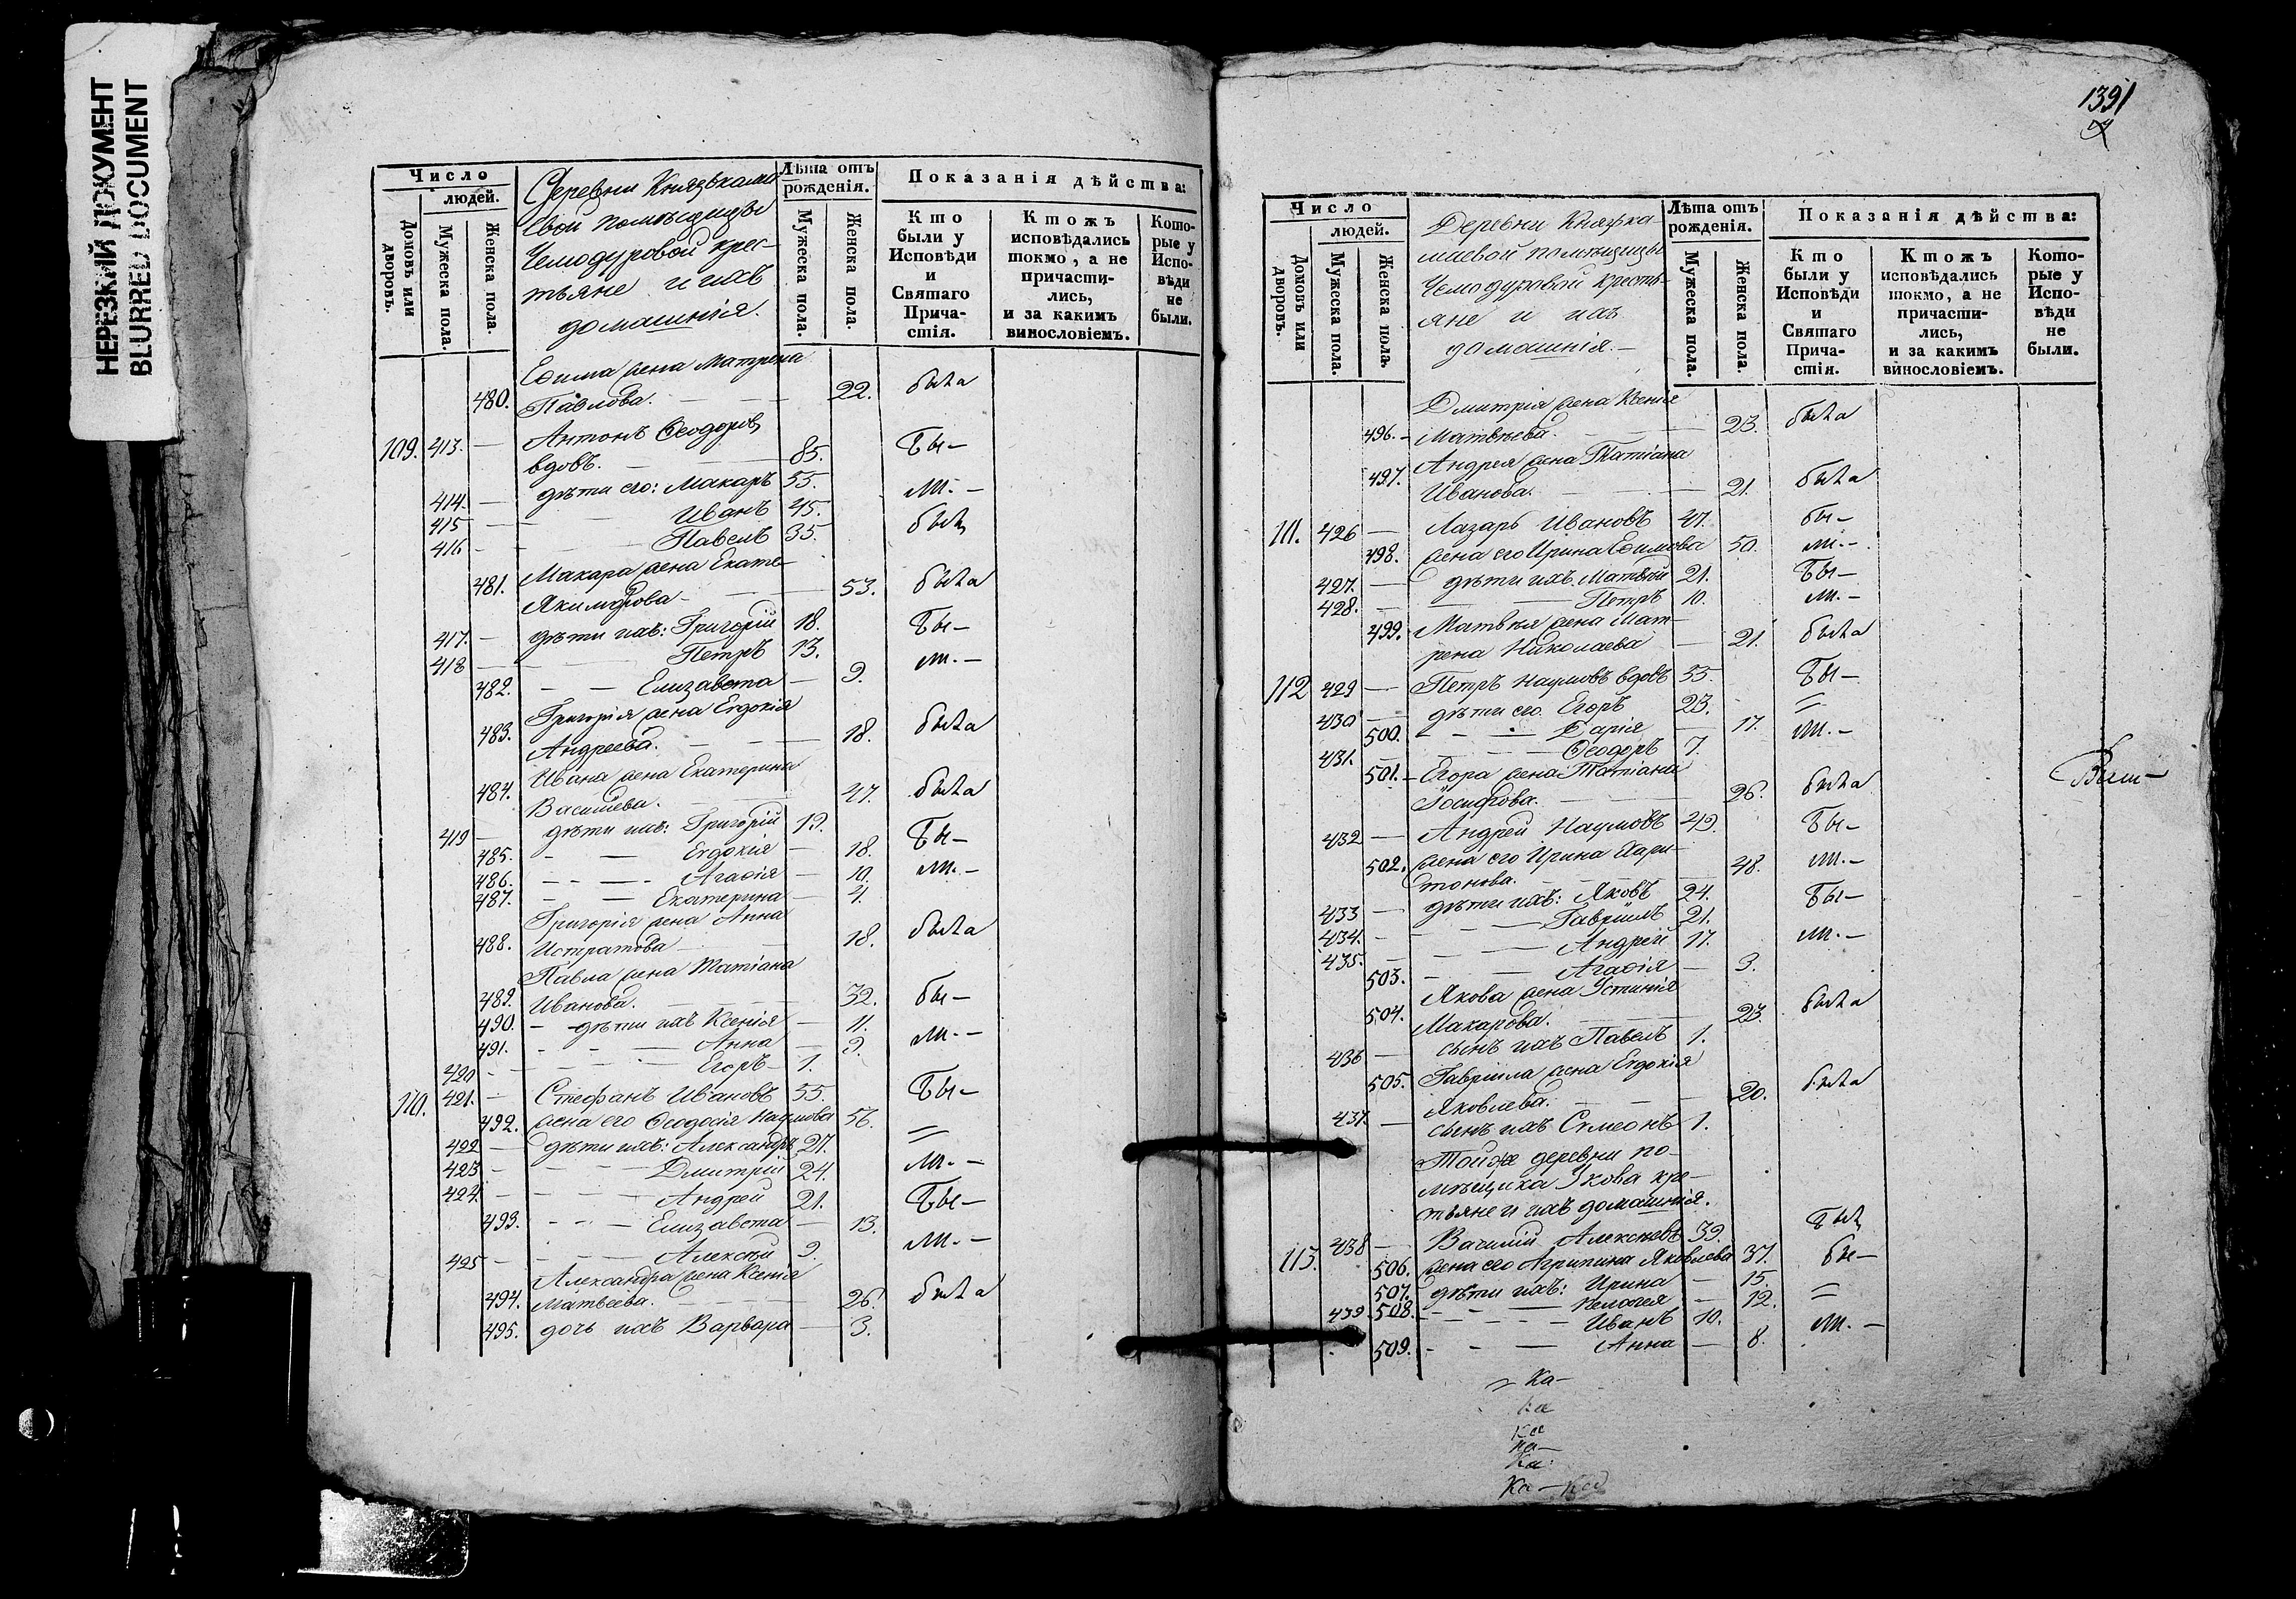 НЕРЕЗКИЙ ДОКУМЕНТ
BLURRED DOCUMENT
Число
людей.
Домовъ или дворовъ.
Мужеска пола.
Женска пола.
Деревни Князькама
евой помѣщицы
Чемодуровой крес-
тьяне и ихъ
домашнія.
Лѣта отъ
рожденія.
Мужеска пола.
Женска пола.
Показанія дѣйства:
Кто
были у
Исповѣди
и
Святаго
Прича-
стія.
Ктожъ
исповѣдались
токмо, а не
причасти-
лись,
и за какимъ
винословіемъ.
Кото-
рые у
Испо-
вѣди
не
были.
Ефима жена Матрена
480. Павлова. 22. была
109. 413. Антонъ Ѳеодоровъ
вдовъ. 85. Бы-
414 дѣти его: Макаръ 55. ли. -
415 Иванъ 45.
416 Павелъ 35. былъ
Макара жена Екате-
481. Якимова 53. была
417. дѣти ихъ: Григорій 18. Бы-
418 Петръ 13.
482. Елизавета 9. ли. -
Григорія жена Евдокія
483. Андреева. 18. была
Ивана жена Екатерина
484. Василіева. 47. была
419 дѣти ихъ: Григорій 19.
485. Евдокія 18. Бы-
486. Агафія 10. ли. -
487. Екатерина 4.
Григорія жена Анна
488. Истратова 18. была
Павла жена Татіана
489. Иванова. 32. бы-
490. дѣти ихъ Ксенія 11.
491. Анна 9. ли. -
420 Егоръ 1.
110. 421. Стефанъ Ивановъ 55. Бы-
492. жена его Ѳеодосія Наумова 56.
422 дѣти ихъ: Александръ 27.
423 Дмитрій 24. ли. -
424 Андрей 21. Бы-
493. Елизавета 13.
425 Алексѣй 9. ли. -
Александра жена Ксенія
494. Матвеева. 26. была
495. дочь ихъ Варвара 3.
1391
Число
людей.
Домовъ или дворовъ.
Мужеска пола.
Женска пола.
Деревни Князька-
маевой помѣщицы
Чемодуровой кресть-
яне и ихъ
домашнія. -
Лѣта отъ
рожденія.
Мужеска пола.
Женска пола.
Показанія дѣйства:
Кто
были у
Исповѣди
и
Святаго
Прича-
стія.
Ктожъ
исповѣдались
токмо, а не
причасти-
лись,
и за какимъ
винословіемъ.
Кото-
рые у
Испо-
вѣди
не
были.
Дмитрія жена Ксенія
496. Матвѣева. 23. была
Андрея жена Татіана
497. Иванова. 21. была
111. 426 Лазарь Ивановъ 47. бы-
498. жена его Ирина Ефимова 50. ли. -
427. дѣти ихъ. Матвѣй 21. Бы-
428. Петръ 10. ли. -
499. Матвѣя жена Мат-
рена Николаева 21. была
112 429 Петръ Наумовъ вдовъ 55. Бы-
430 дѣти его. Егоръ 23.
500. Дарія 17. ли. -
431. Ѳеодоръ 7.
501. Егора жена Татіана
Іосифова. 26. была
432 Андрей Наумовъ 49. Бы-
502. жена его Ирина Хари-
тонова. 48. ли. -
433 дѣти ихъ: Яковъ 24. Бы-
434. Гавріилъ 21.
435. Андрей 17. ли. -
503. Агафія 3.
Якова жена Устинія
504. Макарова. 23. была
436 сынъ ихъ Павелъ 1.
505. Гавріила жена Евдокія
Яковлева. 20. была
437. сынъ ихъ Симеонъ 1.
Тойже деревни по-
мѣщика Укова кре-
тьяне и ихъ домашнія.
113. 438 Василій Алексѣевъ 39. Былъ
506. жена его Агрипина Яковлева 37. бы-
507. дѣти ихъ: Ирина 15.
508. Пелагея 12.
439 Иванъ 10. ли. -
509. Анна 8.
Ка-
Ка
Ка
Ка-
Ка.
Ка - Ка